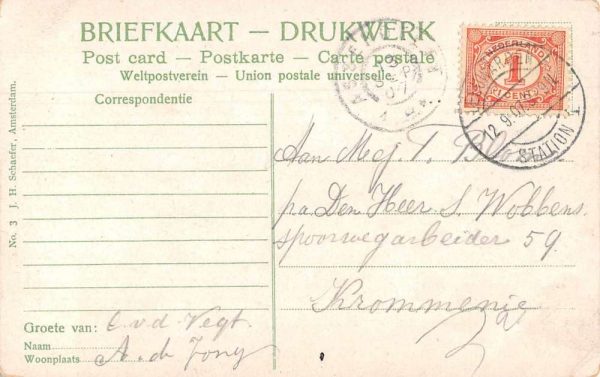 BRIEFKAART — DRUKWERK
Post card — Postkarte — Carte postale
Weltpostverein — Union postale universelle.
NEDERLAND
1
CENT
12.9.07
STATION
13 SEP
07
Correspondentie
Aan Mej. T.
p/a Den Heer S. Wobbens.
spoorwegarbeider 59.
Krommenie
No. 3 J. H. Schaefer, Amsterdam.
Groete van: E.v.d. Vegt.
Naam
Woonplaats A. de Jong